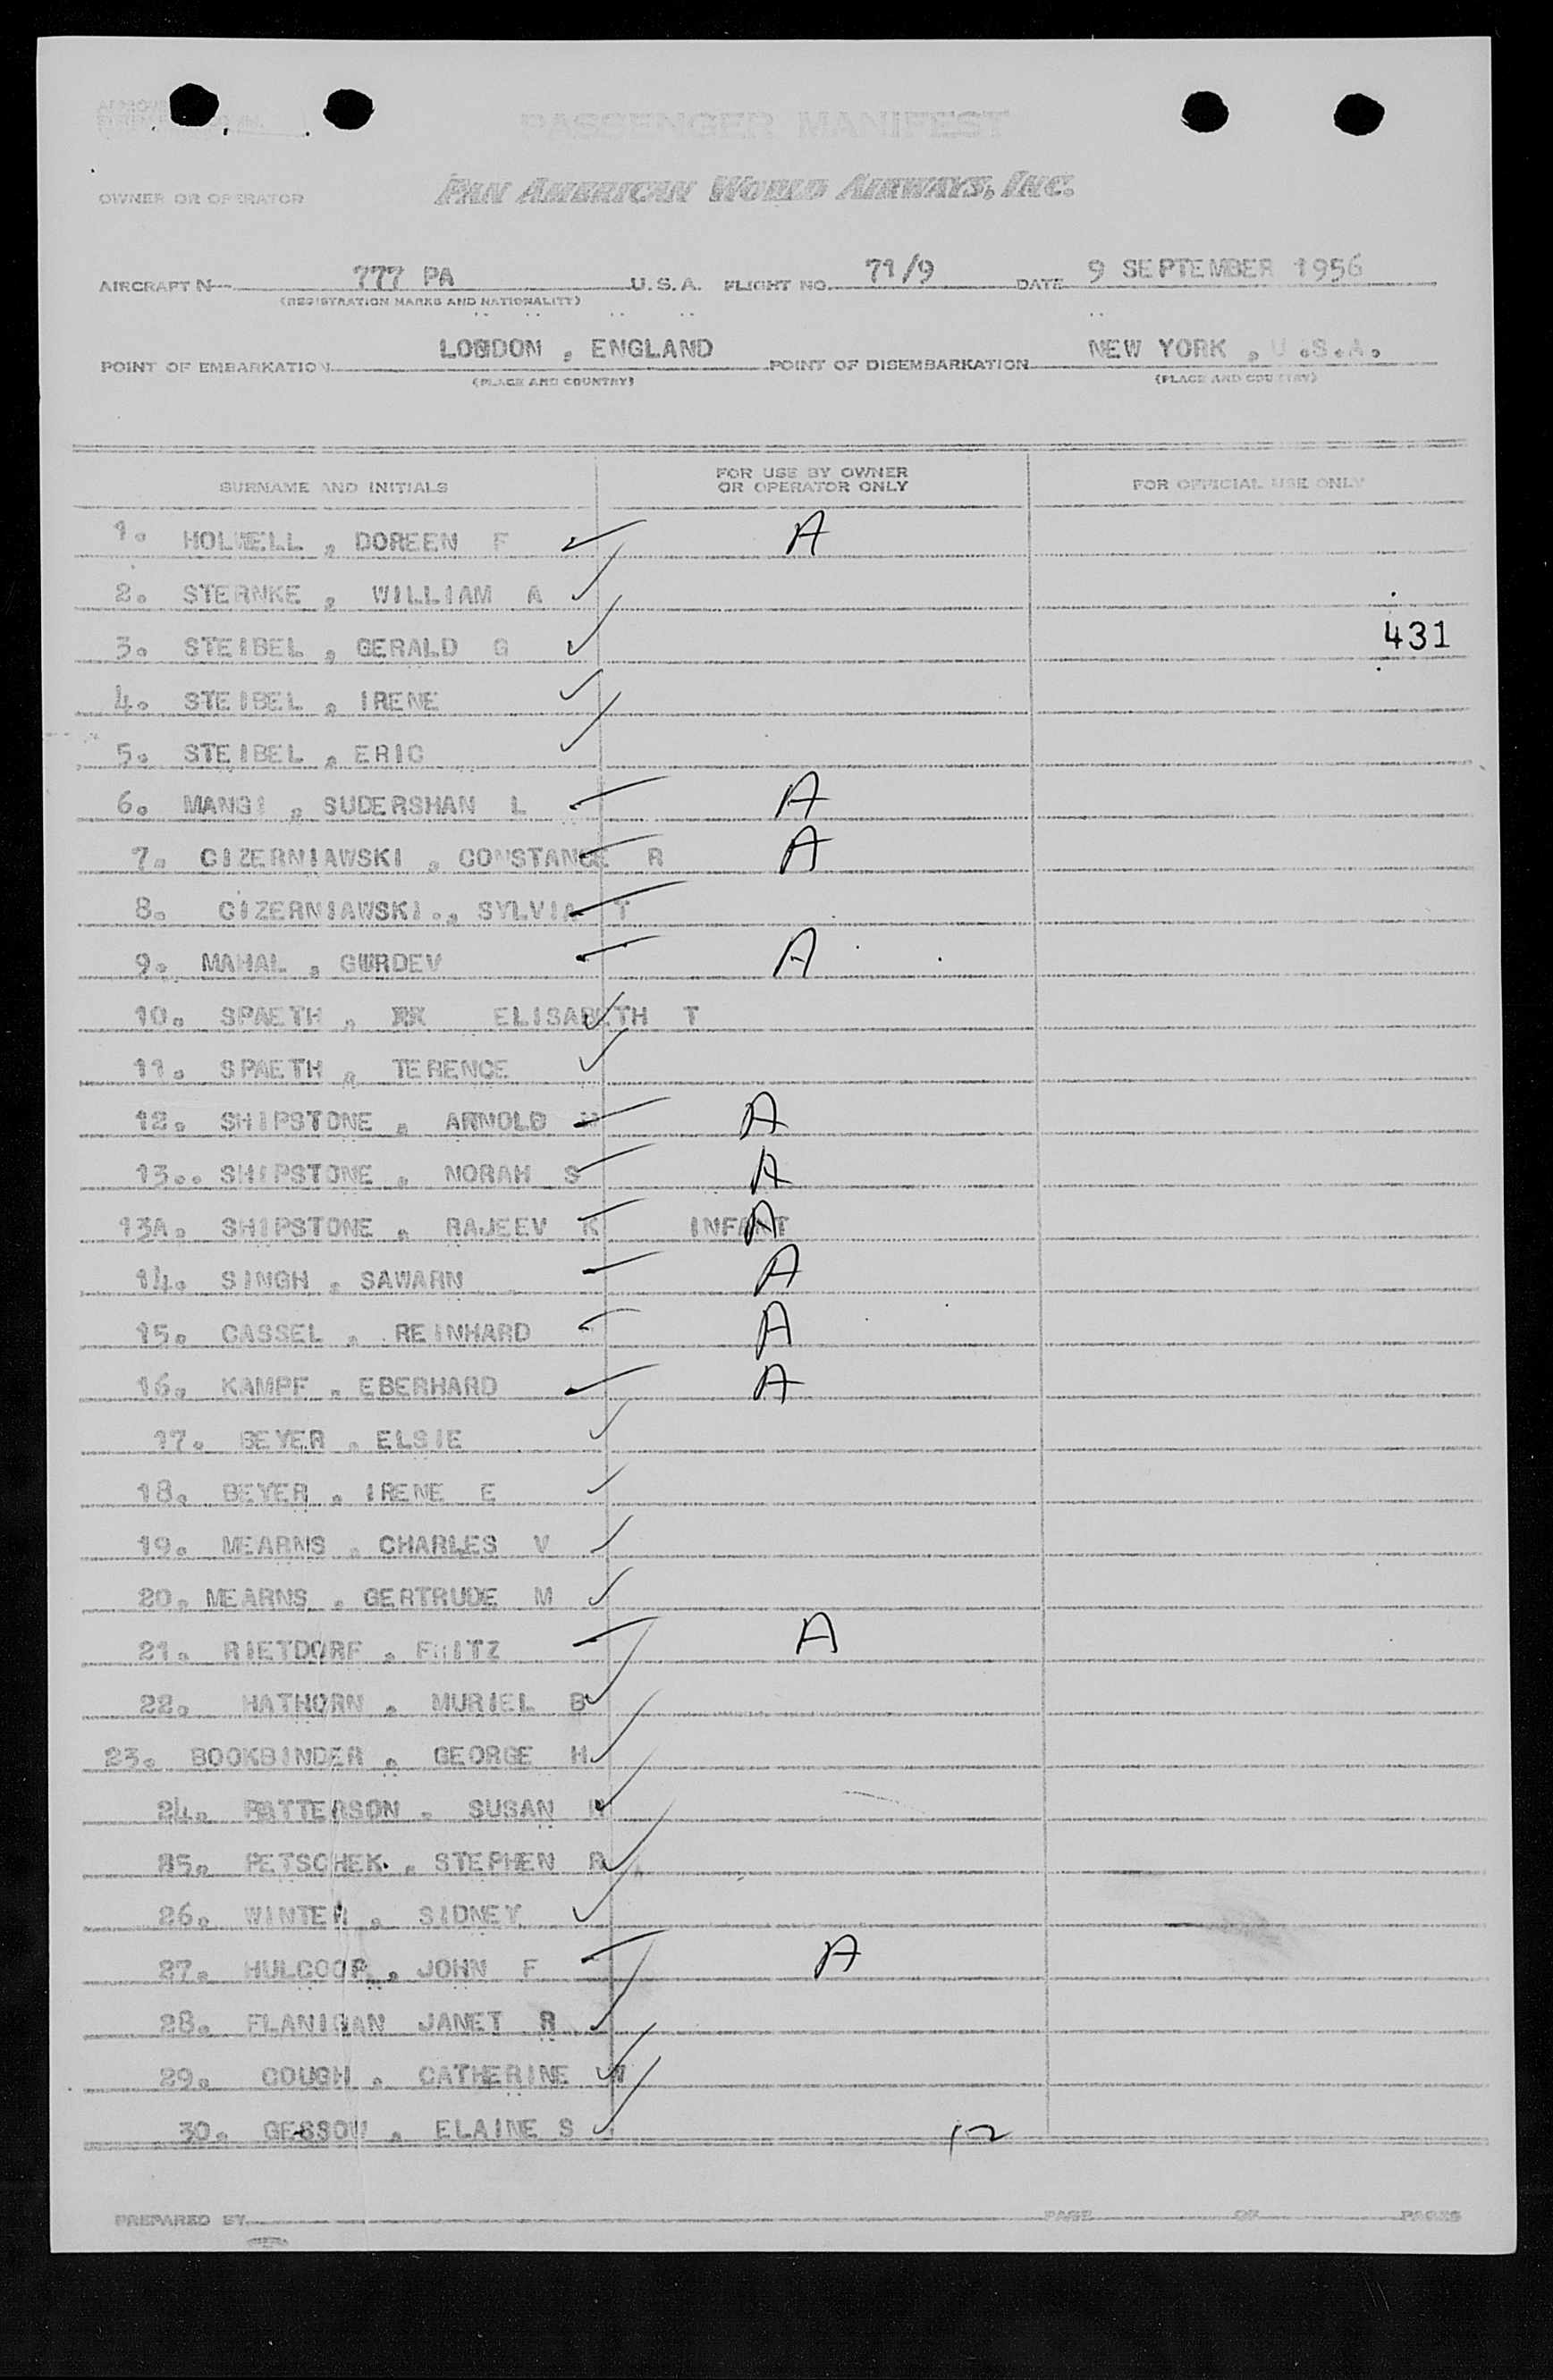 PASSENGER MANIFEST
OWNER OR OPERATOR PAN AMERICAN WORLD AIRWAYS, INC.
AIRCRAFT N 777 PA U.S.A. FLIGHT NO. 71/9 DATE 9 SEPTEMBER 1956
(REGISTRATION MARKS AND NATIONALITY)
POINT OF EMBARKATION LONDON , ENGLAND POINT OF DISEMBARKATION NEW YORK , U.S.A.
(PLACE AND COUNTRY) (PLACE AND COUNTRY)
SURNAME AND INITIALS FOR USE BY OWNER OR OPERATOR ONLY FOR OFFICIAL USE ONLY
1. HOLWELL , DOREEN F A
2. STERNKE , WILLIAM A
3. STEIBEL , GERALD G 431
4. STEIBEL , IRENE
5. STEIBEL , ERIC
6. MANGI , SUDERSHAN L A
7. CIZERNIAWSKI , CONSTANCE R A
8. CIZERNIAWSKI , SYLVIA T
9. MAHAL , GURDEV A
10. SPAETH , XX ELISABETH T
11. SPAETH , TERENCE
12. SHIPSTONE , ARNOLD A
13.. SHIPSTONE , NORAH S A
13A. SHIPSTONE , RAJEEV K INFANT A
14. SINGH , SAWARN A
15. CASSEL , REINHARD A
16. KAMPF , EBERHARD A
17. BEYER , ELSIE
18. BEYER , IRENE E
19. MEARNS , CHARLES V
20. MEARNS , GERTRUDE M
21. RIETDORF , FRITZ A
22. HATHORN , MURIEL B
23. BOOKBINDER , GEORGE H
24. PATTERSON , SUSAN
25. PETSCHEK , STEPHEN R
26. WINTER , SIDNEY
27. HULCOOP , JOHN F A
28. FLANIGAN JANET R
29. GOUGH , CATHERINE
30. GESSOW , ELAINE S 12
PREPARED BY PAGE OF PAGES